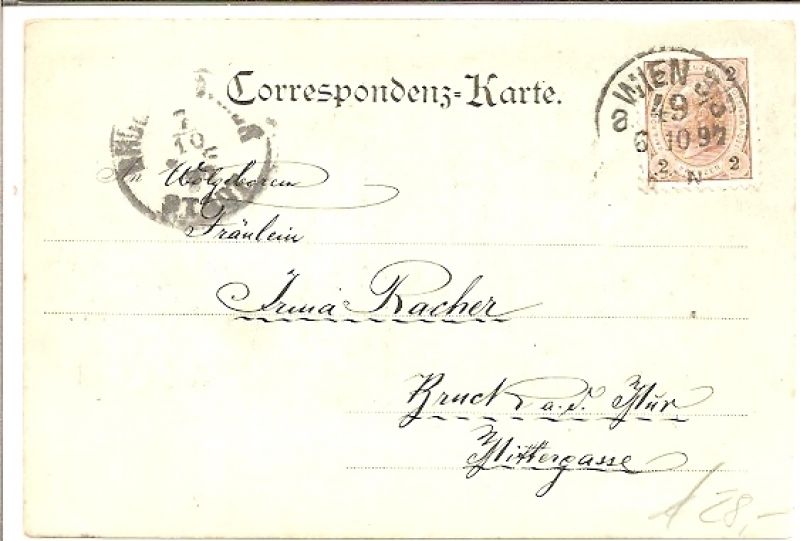 Correspondenz-Karte.
8 WIEN
49
6 10 97
2
2 2
7
10
An Wolgeboren
Fräulein
Irma Racher
Bruck a.d. Mur
Mittergasse
28,-